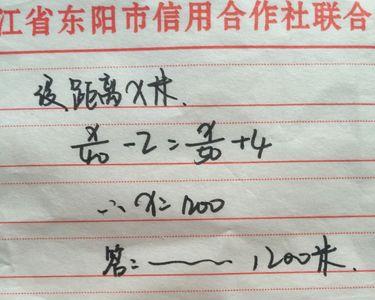 江省东阳市信用合作社联合
设距离x米.
x/40 - 2 = x/50 + 4
∴ x = 1200
答: —— 1200米.